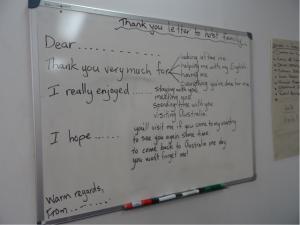 Thank you letter to host family
Dear ............
Thank you very much for
looking after me
helping me with my English
having me
everything you've done for me
I really enjoyed ......
staying with you
meeting you
spending time with you
visiting Australia
I hope ......
you'll visit me if you come to my country
to see you again some time
to come back to Australia one day
you won't forget me!
Warm regards,
From .........